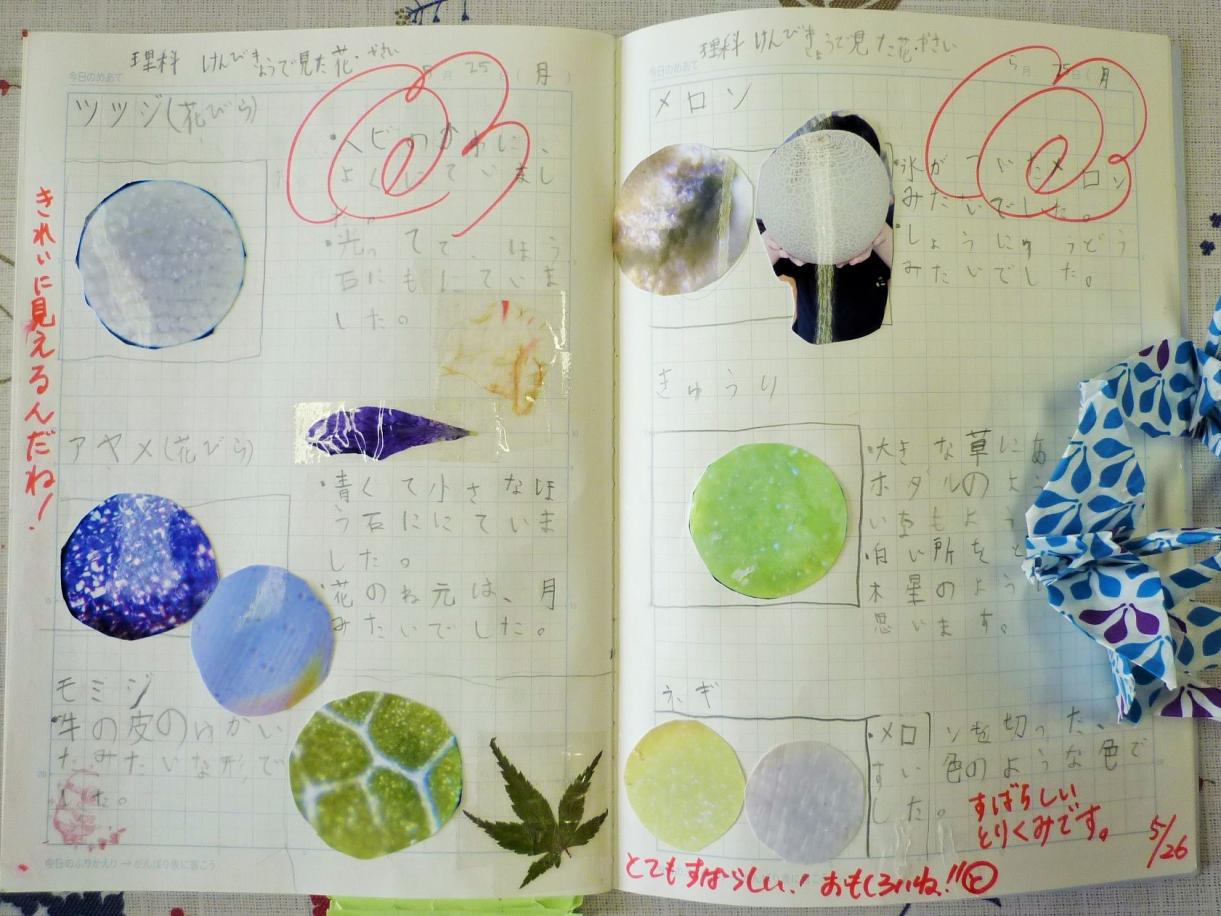 理科 けんびきょうで見た花・やさい
今日のめあて
5月25日(月)
ツツジ(花びら)
・ヘビのかわに、
よくにていまし
た。
・光ってて、ほう
石にもにていま
した。
きれいに見えるんだね!
アヤメ(花びら)
・青くて小さなほ
う石ににていま
した。
・花のね元は、月
みたいでした。
モミジ
・牛の皮の
たみたいな形で
した。
今日のふりかえり→がんばり表に書こう
理科 けんびきょうで見た花・やさい
今日のめあて
5月25日(月)
メロン
・氷がついたメロン
みたいでした。
・しょうにゅうどう
みたいでした。
きゅうり
・大きな草に
ホタルのよ
いまもよう
・白い所を
木星のよう
思います。
ネギ
・メロンを切った、
すい色のような色で
した。
すばらしい
とりくみです。
5/26
とてもすばらしい! おもしろいね!!